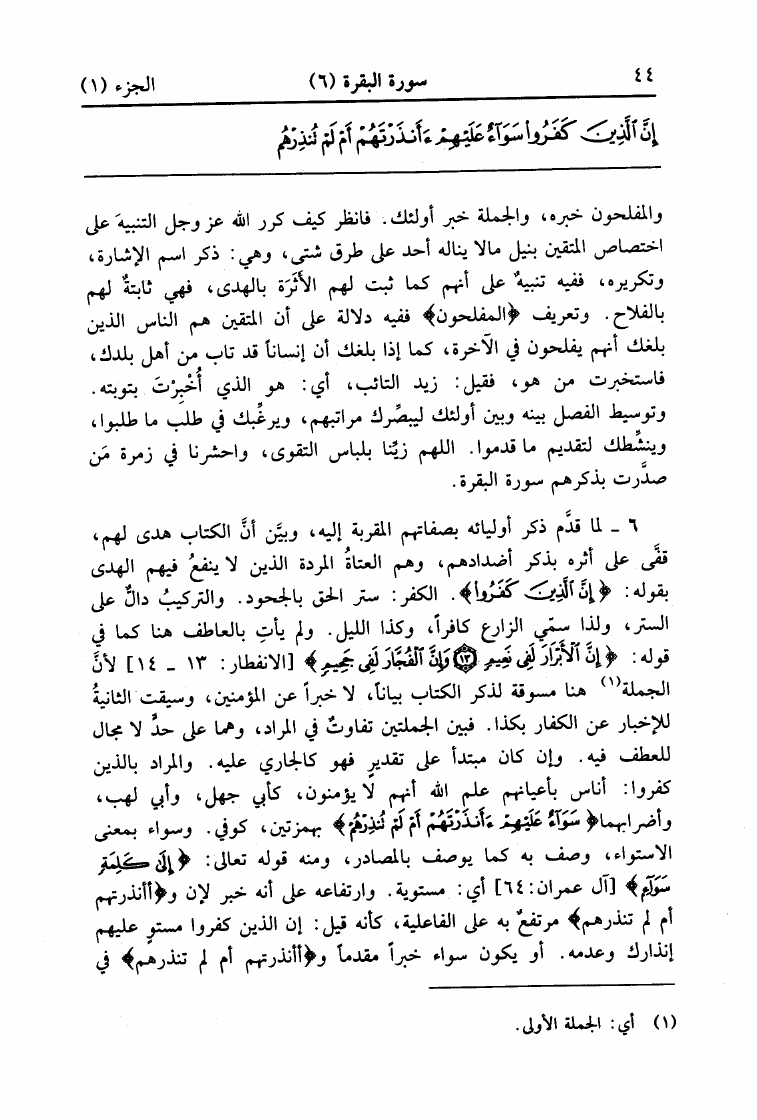 ٤٤ سورة البقرة (٦) الجزء (١)
إِنَّ ٱلَّذِينَ كَفَرُوا۟ سَوَآءٌ عَلَيْهِمْ ءَأَنذَرْتَهُمْ أَمْ لَمْ تُنذِرْهُمْ
والمفلحون خبره، والجملة خبر أولئك. فانظر كيف كرر الله عز وجل التنبيهَ على
اختصاص المتقين بنيل مالا يناله أحد على طرق شتى، وهي: ذكر اسم الإشارة،
وتكريره، ففيه تنبيهٌ على أنهم كما ثبت لهم الأَثَرَة بالهدى، فهي ثابتةٌ لهم
بالفلاح. وتعريف ﴿المفلحون﴾ ففيه دلالة على أن المتقين هم الناس الذين
بلغك أنهم يفلحون في الآخرة، كما إذا بلغك أن إنساناً قد تاب من أهل بلدك،
فاستخبرت من هو، فقيل: زيد التائب، أي: هو الذي أُخْبِرْتَ بتوبته.
وتوسيط الفصل بينه وبين أولئك ليبصِّرك مراتبهم، ويرغِّبك في طلب ما طلبوا،
وينشِّطك لتقديم ما قدموا. اللهم زيِّنا بلباس التقوى، واحشرنا في زمرة مَن
صدَّرت بذكرهم سورة البقرة.
٦ - لما قدَّم ذكر أوليائه بصفاتهم المقربة إليه، وبيَّن أنَّ الكتاب هدى لهم،
قفَّى على أثره بذكر أضدادهم، وهم العتاةُ المردة الذين لا ينفعُ فيهم الهدى
بقوله: ﴿إِنَّ ٱلَّذِينَ كَفَرُوا۟﴾. الكفر: ستر الحق بالجحود. والتركيبُ دالٌ على
الستر، ولذا سمّي الزارع كافراً، وكذا الليل. ولم يأتِ بالعاطف هنا كما في
قوله: ﴿إِنَّ ٱلْأَبْرَارَ لَفِى نَعِيمٍ ١٣ وَإِنَّ ٱلْفُجَّارَ لَفِى جَحِيمٍ﴾ [الانفطار: ١٣ - ١٤] لأنَّ
الجملة(١) هنا مسوقة لذكر الكتاب بياناً، لا خبراً عن المؤمنين، وسيقت الثانيةُ
للإخبار عن الكفار بكذا. فبين الجملتين تفاوتٌ في المراد، وهما على حدٍّ لا مجال
للعطف فيه. وإن كان مبتدأ على تقديرٍ فهو كالجاري عليه. والمراد بالذين
كفروا: أناس بأعيانهم علم الله أنهم لا يؤمنون، كأبي جهل، وأبي لهب،
وأضرابهما ﴿سَوَآءٌ عَلَيْهِمْ ءَأَنذَرْتَهُمْ أَمْ لَمْ تُنذِرْهُمْ﴾ بهمزتين، كوفي. وسواء بمعنى
الاستواء، وصف به كما يوصف بالمصادر، ومنه قوله تعالى: ﴿إِلَىٰ كَلِمَةٍ
سَوَآءٍ﴾ [آل عمران: ٦٤] أي: مستوية. وارتفاعه على أنه خبر لإن و﴿أأنذرتهم
أم لم تنذرهم﴾ مرتفعٌ به على الفاعلية، كأنه قيل: إن الذين كفروا مستوٍ عليهم
إنذارك وعدمه. أو يكون سواء خبراً مقدماً و﴿أأنذرتهم أم لم تنذرهم﴾ في
(١) أي: الجملة الأولى.